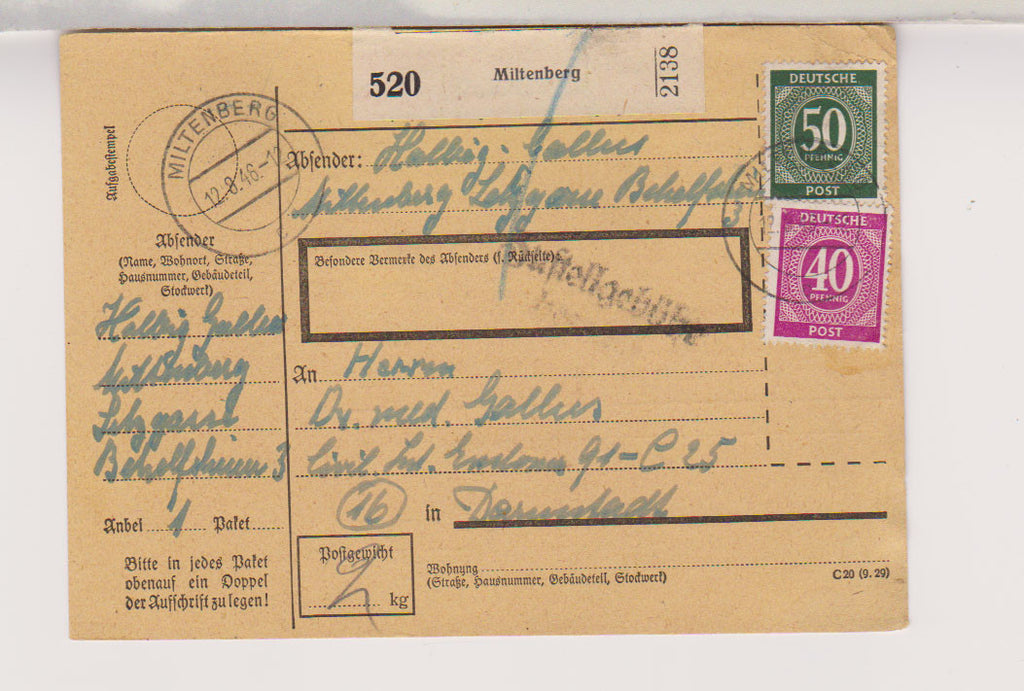 520 Miltenberg 2138
DEUTSCHE
50
PFENNIG
POST
DEUTSCHE
40
PFENNIG
POST
Aufgabestempel
MILTENBERG
12.8.46.-1
Absender: Halbig-Gallus
Miltenberg
Absender
(Name, Wohnort, Straße,
Hausnummer, Gebäudeteil,
Stockwerk)
Halbig Gallus
Miltenberg
3
Besondere Vermerke des Absenders (s. Rückseite):
Zustellgebühr
An Herrn
Dr. med. Gallus
91-C 25
(16) in Darmstadt
Anbei 1 Paket
Bitte in jedes Paket
obenauf ein Doppel
der Aufschrift zu legen!
Postgewicht
2 kg
Wohnung
(Straße, Hausnummer, Gebäudeteil, Stockwerk)
C 20 (9. 29)